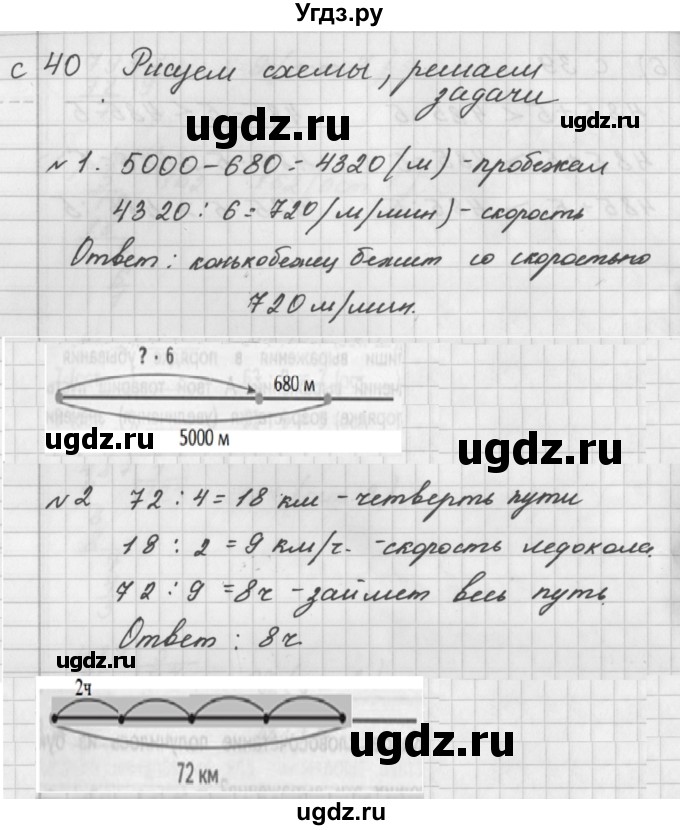 Угдз.ру
с 40 Рисуем схемы, решаем
задачи
ugdz.ru
ugdz.ru
№1. 5000-680=4320(м)-пробежал
4320:6=720(м/мин)-скорость
Ответ: конькобежец бежит со скоростью
720 м/мин.
? · 6
680 м
5000 м
ugdz.ru
ugdz.ru
№2 72:4=18 км -четверть пути
18:2=9 км/ч. -скорость ледокола.
72:9=8ч -займет весь путь
Ответ: 8ч.
ugdz.ru
2ч
72 км
ugdz.ru
ugdz.ru